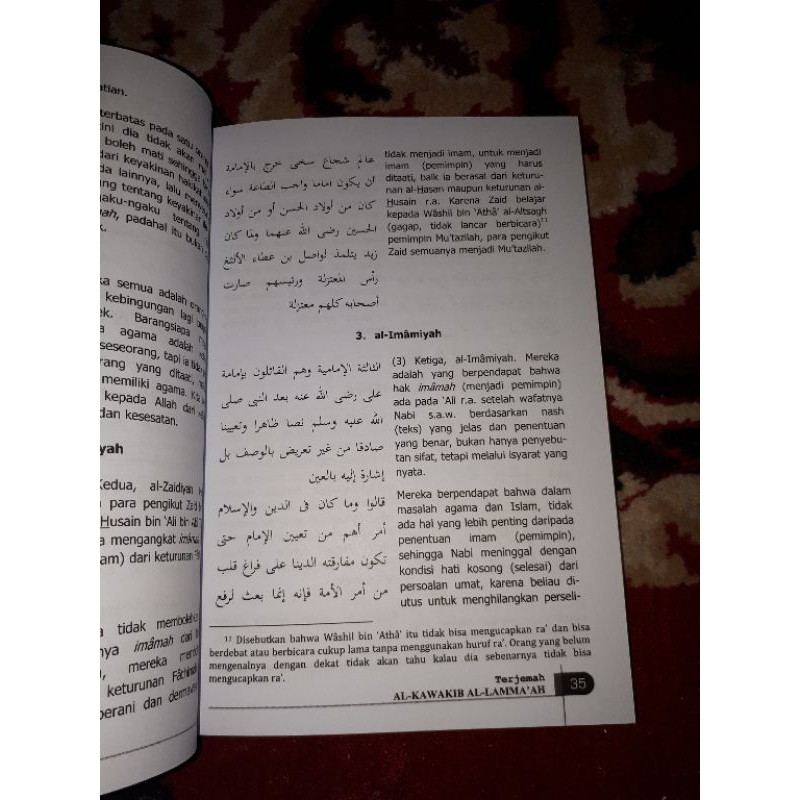 atian.
terbatas pada satu
ini dia tidak akan
boleh mati sehingga
dari keyakinan
da lainnya, lalu
ng tentang keyakinan
aku-ngaku tentang
mah, padahal itu bukan
k.
ka semua adalah
kebingungan lagi
ek. Barangsiapa
a agama adalah
seseorang, tapi ia
rang yang ditaati,
memiliki agama.
kepada Allah dari
dan kesesatan.
yah
Kedua, al-Zaidiyah
para pengikut Zaid
Husain bin ‘Ali bin Abi
a mengangkat
am) dari keturunan
a tidak membolehkan
nya imâmah dari
), mereka
keturunan
berani dan
عالم شجاع سخى خرج بالإمامة
أن يكون إماما واجب الطاعة سواء
كان من أولاد الحسن أو من أولاد
الحسين رضى الله عنهما ولما كان
زيد يتلمذ لواصل بن عطاء الألثغ
رأس المعتزلة ورئيسهم صارت
أصحابه كلهم معتزلة
tidak menjadi imam, untuk menjadi
imam (pemimpin) yang harus
ditaati, baik ia berasal dari keturu-
nan al-Hasan maupun keturunan al-
Husain r.a. Karena Zaid belajar
kepada Wâshil bin ‘Athâ’ al-Altsagh
(gagap, tidak lancar berbicara)¹⁷
pemimpin Mu’tazilah, para pengikut
Zaid semuanya menjadi Mu’tazilah.
3. al-Imâmiyah
الثالثة الإمامية وهم القائلون بإمامة
على رضى الله عنه بعد النبى صلى
الله عليه وسلم نصا ظاهرا وتعيينا
صادقا من غير تعريض بالوصف بل
إشارة إليه بالعين
قالوا وما كان فى الدين والإسلام
أمر أهم من تعيين الإمام حتى
تكون مفارقته الدنيا على فراغ قلب
من أمر الأمة فإنه إنما بعث لرفع
(3) Ketiga, al-Imâmiyah. Mereka
adalah yang berpendapat bahwa
hak imâmah (menjadi pemimpin)
ada pada ‘Ali r.a. setelah wafatnya
Nabi s.a.w. berdasarkan nash
(teks) yang jelas dan penentuan
yang benar, bukan hanya penyebu-
tan sifat, tetapi melalui isyarat yang
nyata.
Mereka berpendapat bahwa dalam
masalah agama dan Islam, tidak
ada hal yang lebih penting daripada
penentuan imam (pemimpin),
sehingga Nabi meninggal dengan
kondisi hati kosong (selesai) dari
persoalan umat, karena beliau di-
utus untuk menghilangkan perseli-
¹⁷ Disebutkan bahwa Wâshil bin ‘Athâ’ itu tidak bisa mengucapkan ra’ dan bisa
berdebat atau berbicara cukup lama tanpa menggunakan huruf ra’. Orang yang belum
mengenalnya dengan dekat tidak akan tahu kalau dia sebenarnya tidak bisa
mengucapkan ra’.
Terjemah
AL-KAWAKIB AL-LAMMA’AH
35